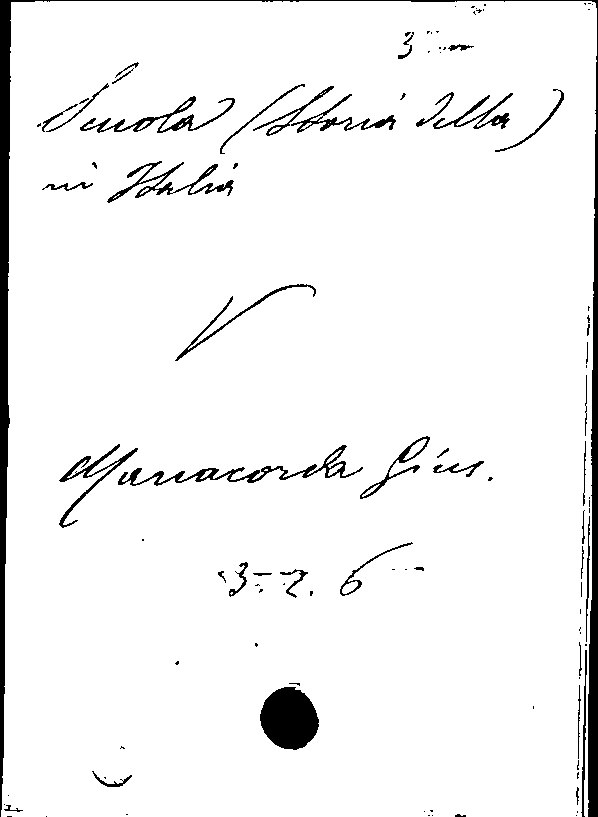 3
Scuola (Storia della)
in Italia
V
Manacorda Gius.
3. 2. 6